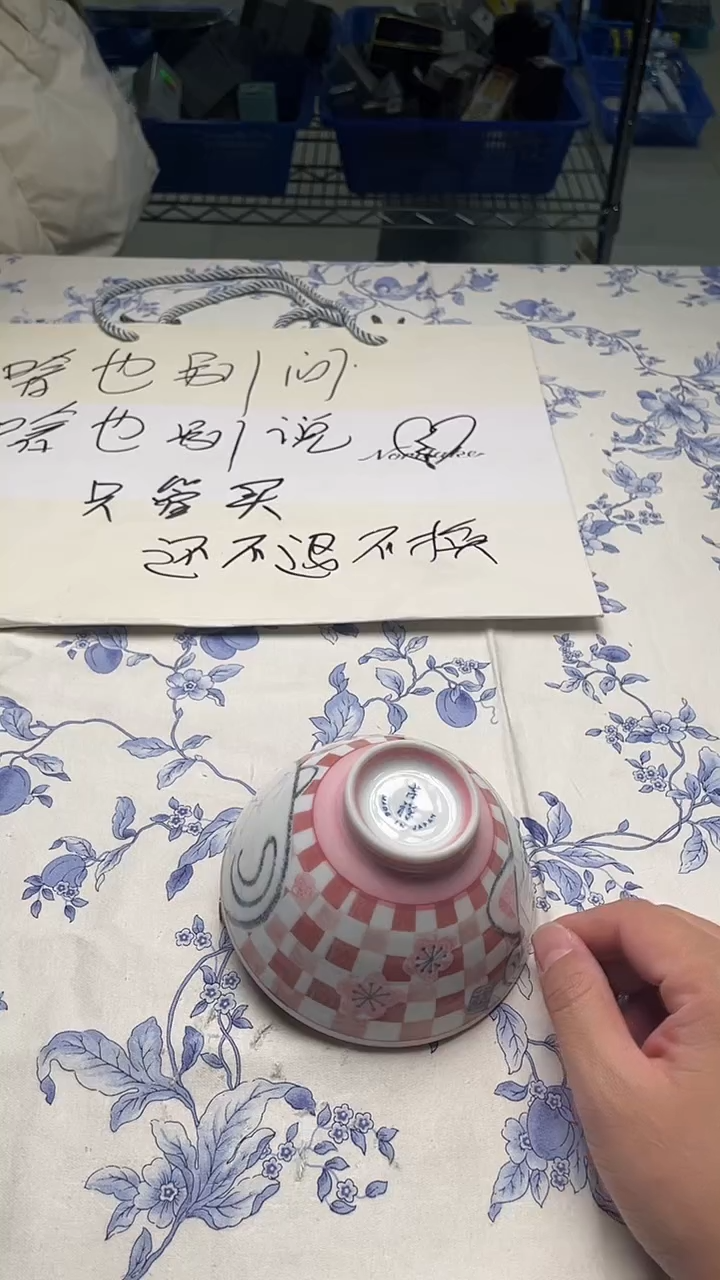 啥也别问
啥也别说
只管买
还不退不换
MADE IN JAPAN